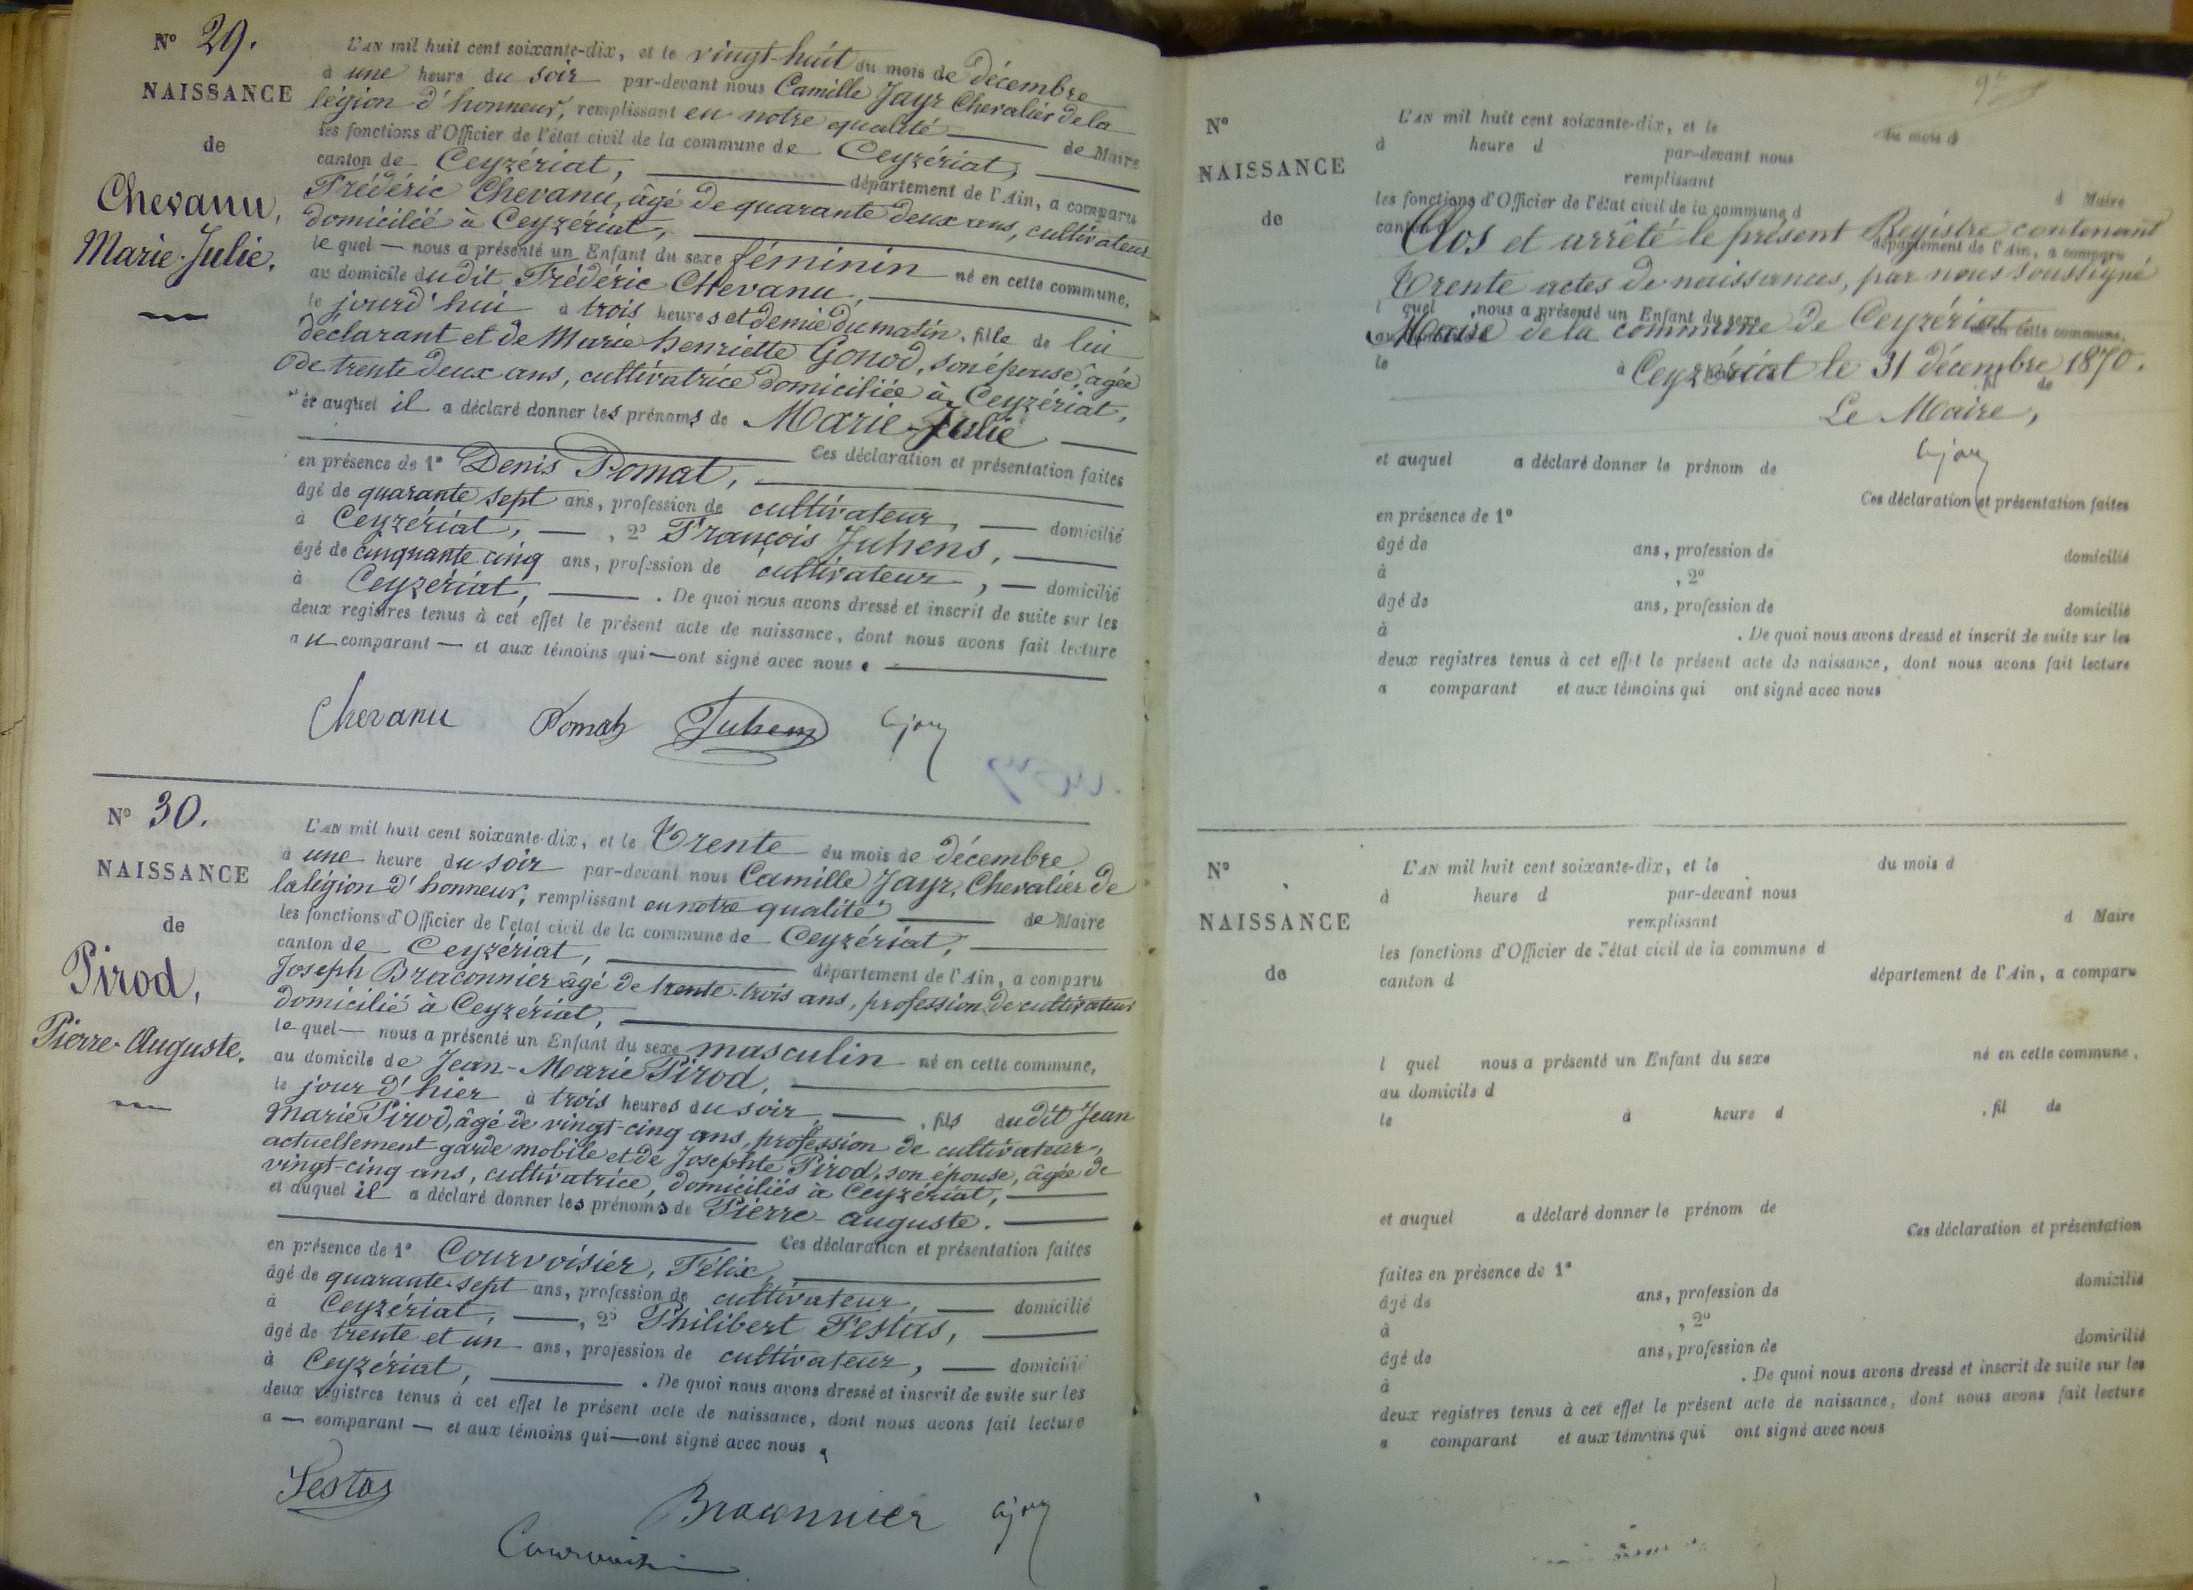 N° 29.
NAISSANCE
de
Chevanu,
Marie-Julie.
L'AN mil huit cent soixante-dix, et le vingt-huit du mois de décembre
à une heure du soir par-devant nous Camille Jayr Chevalier de la
légion d'honneur, remplissant en notre qualité de Maire
les fonctions d'Officier de l'état civil de la commune de Ceyzériat,
canton de Ceyzériat, département de l'Ain, a comparu
Frédéric Chevanu, âgé de quarante deux ans, cultivateur
domicilié à Ceyzériat,
lequel nous a présenté un Enfant du sexe féminin né en cette commune,
au domicile dudit Frédéric Chevanu,
le jourd'hui à trois heures et demie du matin, fille de lui
déclarant et de Marie henriette Gonod, son épouse, âgée
de trente deux ans, cultivatrice domiciliée à Ceyzériat,
et auquel il a déclaré donner les prénoms de Marie-Julie
Ces déclaration et présentation faites
en présence de 1° Denis Pomat,
âgé de quarante sept ans, profession de cultivateur, domicilié
à Ceyzériat, , 2° François Juhens,
âgé de cinquante cinq ans, profession de cultivateur, domicilié
à Ceyzériat, . De quoi nous avons dressé et inscrit de suite sur les
deux registres tenus à cet effet le présent acte de naissance, dont nous avons fait lecture
au comparant et aux témoins qui ont signé avec nous.
Chevanu Pomat Juhens
N° 30.
NAISSANCE
de
Pirod,
Pierre-Auguste.
L'AN mil huit cent soixante-dix, et le Trente du mois de décembre
à une heure du soir par-devant nous Camille Jayr, Chevalier de
la légion d'honneur, remplissant en notre qualité de Maire
les fonctions d'Officier de l'état civil de la commune de Ceyzériat,
canton de Ceyzériat, département de l'Ain, a comparu
Joseph Braconnier âgé de trente-trois ans, profession de cultivateur
domicilié à Ceyzériat,
lequel nous a présenté un Enfant du sexe masculin né en cette commune,
au domicile de Jean-Marie Pirod,
le jour d'hier à trois heures du soir, , fils dudit Jean
Marie Pirod, âgé de vingt-cinq ans, profession de cultivateur,
actuellement garde mobile et de Josephte Pirod, son épouse, âgée de
vingt-cinq ans, cultivatrice, domiciliés à Ceyzériat,
et auquel il a déclaré donner les prénoms de Pierre-auguste.
Ces déclaration et présentation faites
en présence de 1° Courvoisier, Félix,
âgé de quarante-sept ans, profession de cultivateur, domicilié
à Ceyzériat, , 2° Philibert Festas,
âgé de trente et un ans, profession de cultivateur, domicilié
à Ceyzériat, . De quoi nous avons dressé et inscrit de suite sur les
deux registres tenus à cet effet le présent acte de naissance, dont nous avons fait lecture
a comparant et aux témoins qui ont signé avec nous
Festas
Braconnier
N°
NAISSANCE
de
L'AN mil huit cent soixante-dix, et le du mois d
à heure d par-devant nous
remplissant d Maire
les fonctions d'Officier de l'état civil de la commune d
Clos et arrêté le présent Registre contenant
département de l'Ain, a comparu
Trente actes de naissances, par nous soussigné
l quel nous a présenté un Enfant du sexe né en cette commune,
Maire de la commune de Ceyzériat
le à
Ceyzériat le 31 décembre 1870.
Le Maire,
et auquel a déclaré donner le prénom de
Ces déclaration et présentation faites
en présence de 1°
âgé de ans, profession de domicilié
à , 2°
âgé de ans, profession de domicilié
à . De quoi nous avons dressé et inscrit de suite sur les
deux registres tenus à cet effet le présent acte de naissance, dont nous avons fait lecture
a comparant et aux témoins qui ont signé avec nous
N°
NAISSANCE
de
L'AN mil huit cent soixante-dix, et le du mois d
à heure d par-devant nous
remplissant d Maire
les fonctions d'Officier de l'état civil de la commune d
canton d département de l'Ain, a comparu
l quel nous a présenté un Enfant du sexe né en cette commune,
au domicile d
le à heure d , fil de
et auquel a déclaré donner le prénom de
Ces déclaration et présentation
faites en présence de 1°
âgé de ans, profession de domicilié
à , 2°
âgé de ans, profession de domicilié
à . De quoi nous avons dressé et inscrit de suite sur les
deux registres tenus à cet effet le présent acte de naissance, dont nous avons fait lecture
a comparant et aux témoins qui ont signé avec nous